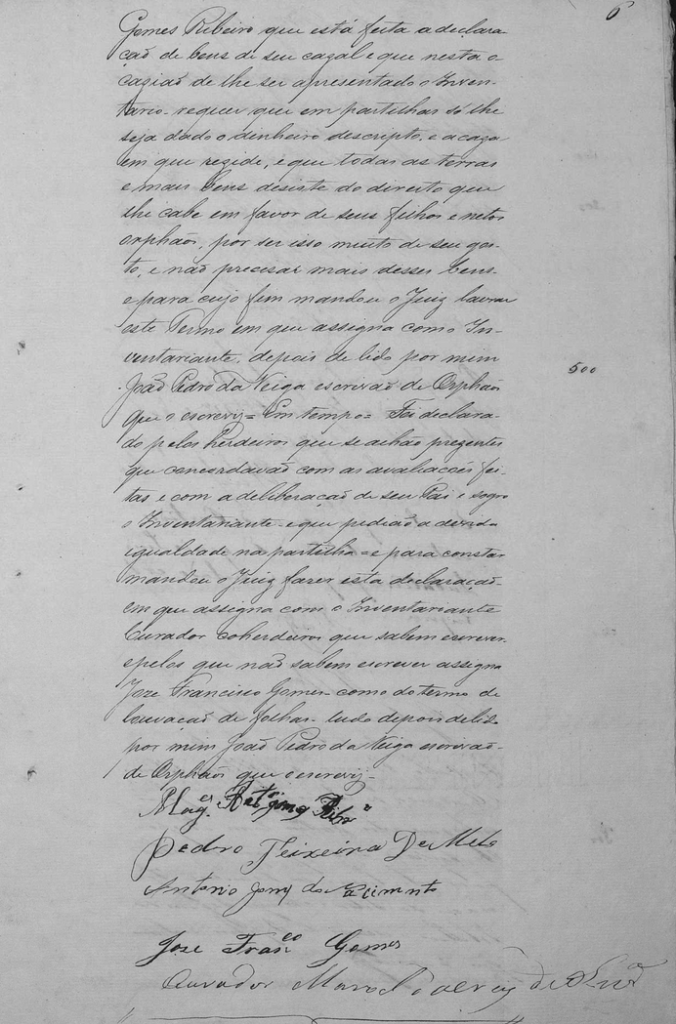 6
Gomes Ribeiro que está feita a declara
ção de bens de seu cazal e que nesta o
cazião de lhe ser apresentado o Inven-
tario requer que em partilhas só lhe
seja dado o dinheiro descripto, e a caza
em que rezide, e que todas as terras
e mais bens desiste do direito que
lhe cabe em favor de seus filhos e netos
orphãos, por ser isso muito de seu gos-
to, e não precizar mais desses bens
e para cujo fim mandou o Juiz lavrar
este Termo em que assigna como In-
ventariante, depois de lido por mim
500
João Pedro da Veiga escrivão de Orphãos
que o escrevy = Em tempo = Foi declara-
do pelos Herdeiros que se achão prezentes
que concordavão com as avaliações fei-
tas e com a deliberação de seu Pai e sogro
o Inventariante e que pedião a devida
igualdade na partilha = e para constar
mandou o Juiz fazer esta declaração
em que assigna com o Inventariante
Curador coherdeiros que sabem escrever,
e pelos que não sabem escrever assigna
Joze Francisco Gomes como do termo de
louvação de folhas tudo depois de lido
por mim João Pedro da Veiga escrivão
de Orphãos que o escrevy =
Gomes Ribrº
Pedro Teixeira De Melo
Antonio
Jose Franco Gomes
Curador Manoel